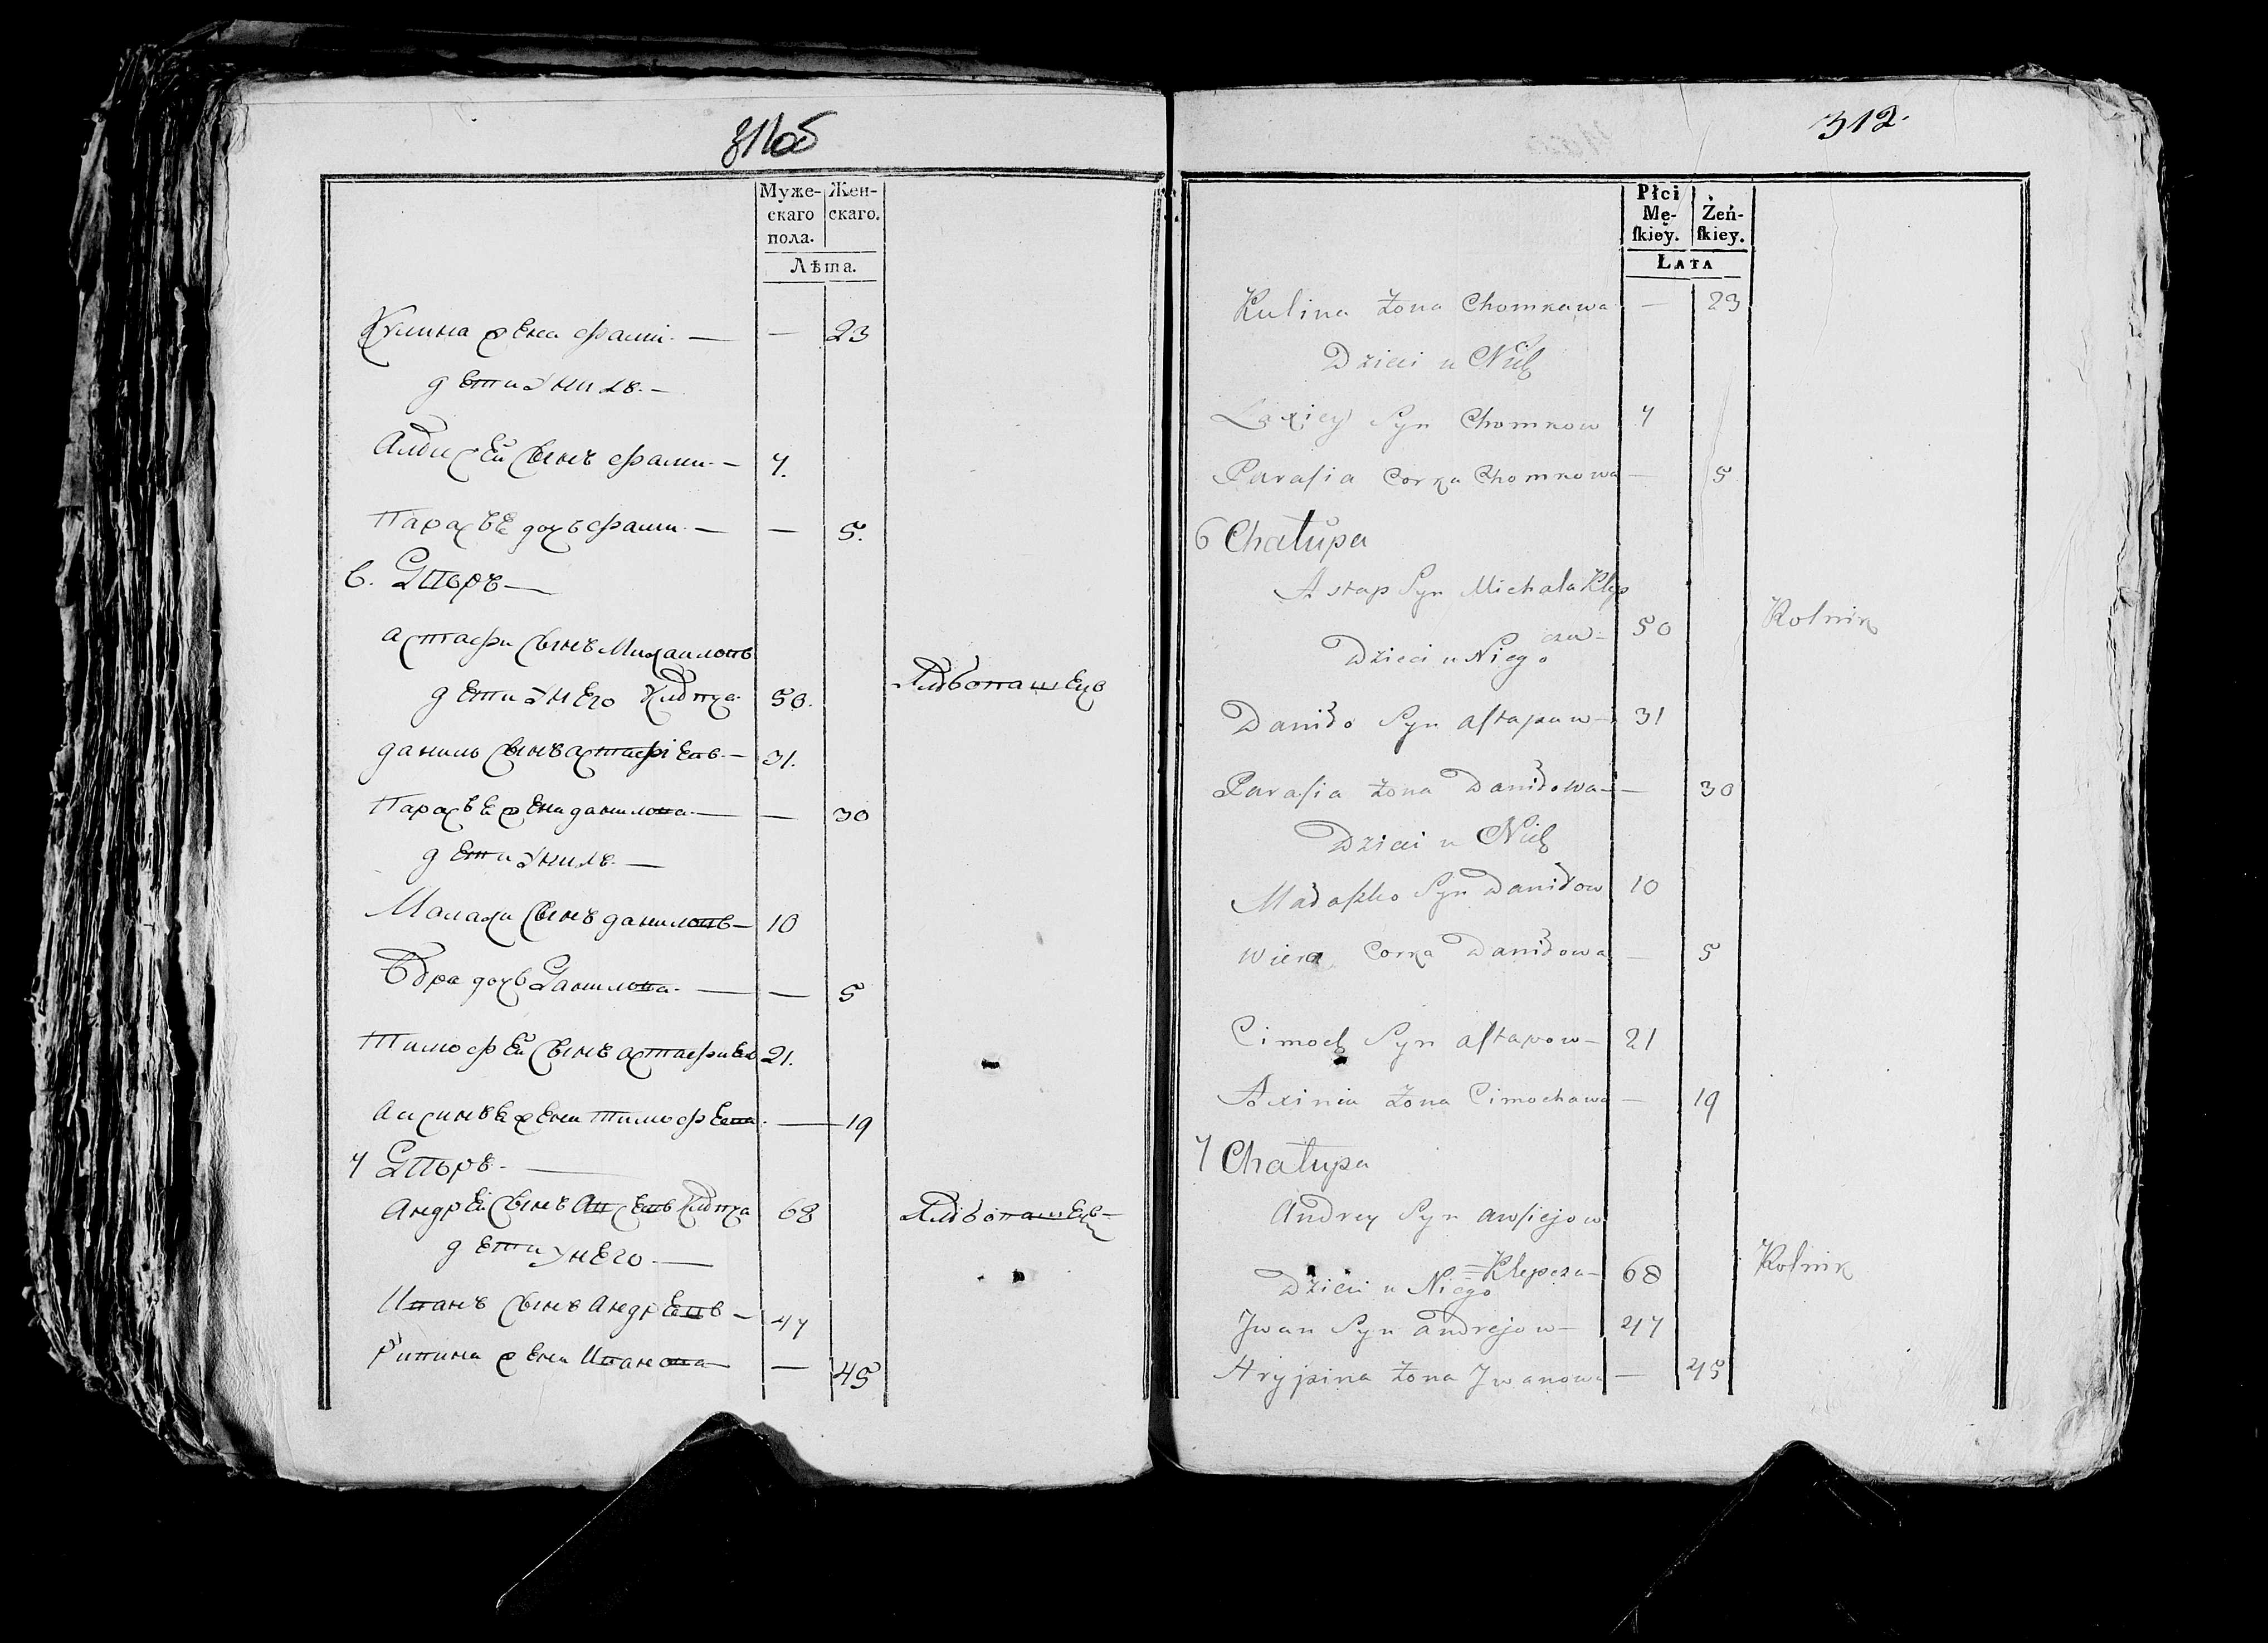 311об
Муже- Жен-
скаго скаго.
пола.
Лѣта.
Кулина жена Фами — — 23
дети у них —
Алексей сынъ Фами — 7.
Парасве дочь Фами — — 5.
6. Дворъ —
Астафи сынъ Михаиловъ
дети у него Клепча 50. Хлебопашець
данило сынъ Астафіевъ — 31.
Парасве жена данилова — — 30
дети у нихъ —
Малахи сынъ даниловъ — 10
Вера дочь Данилова — — 5
Тимофей сынъ Астафиев 21.
Аксинье жена Тимофеева — 19
7 Дворъ —
Андрей сынъ Авсеевъ Клепча 68 Хлебопашець
дети у него —
Иванъ сынъ Андреевъ — 47
жена Иванова — 45
312
Płci
Mę- Żeń-
ſkiey. ſkiey.
Lata
Kulina żona Chomkawa — 23
Dzieci u Nich
Laxiey Syn Chomkow 7
Paraſia Corka Chomkowa — 5
6 Chałupa
Astap Syn Michała Klep
cza — 50 Rolnik
Dzieci u Niego
Daniło Syn Aſtapaw — 31
Paraſia żona Daniłowa — 30
Dzieci u Nich
Małaſzko Syn Daniłow 10
Wiera Corka Daniłowa — 5
Cimoch Syn Aſtapow — 21
Axinia żona Cimochawa — 19
7 Chałupa
Andrey Syn Awſiejow
Klepcza — 68 Rolnik
Dzieci u Niego
Jwan Syn Andrejow — 47
Hrypina żona Jwanowa — 45